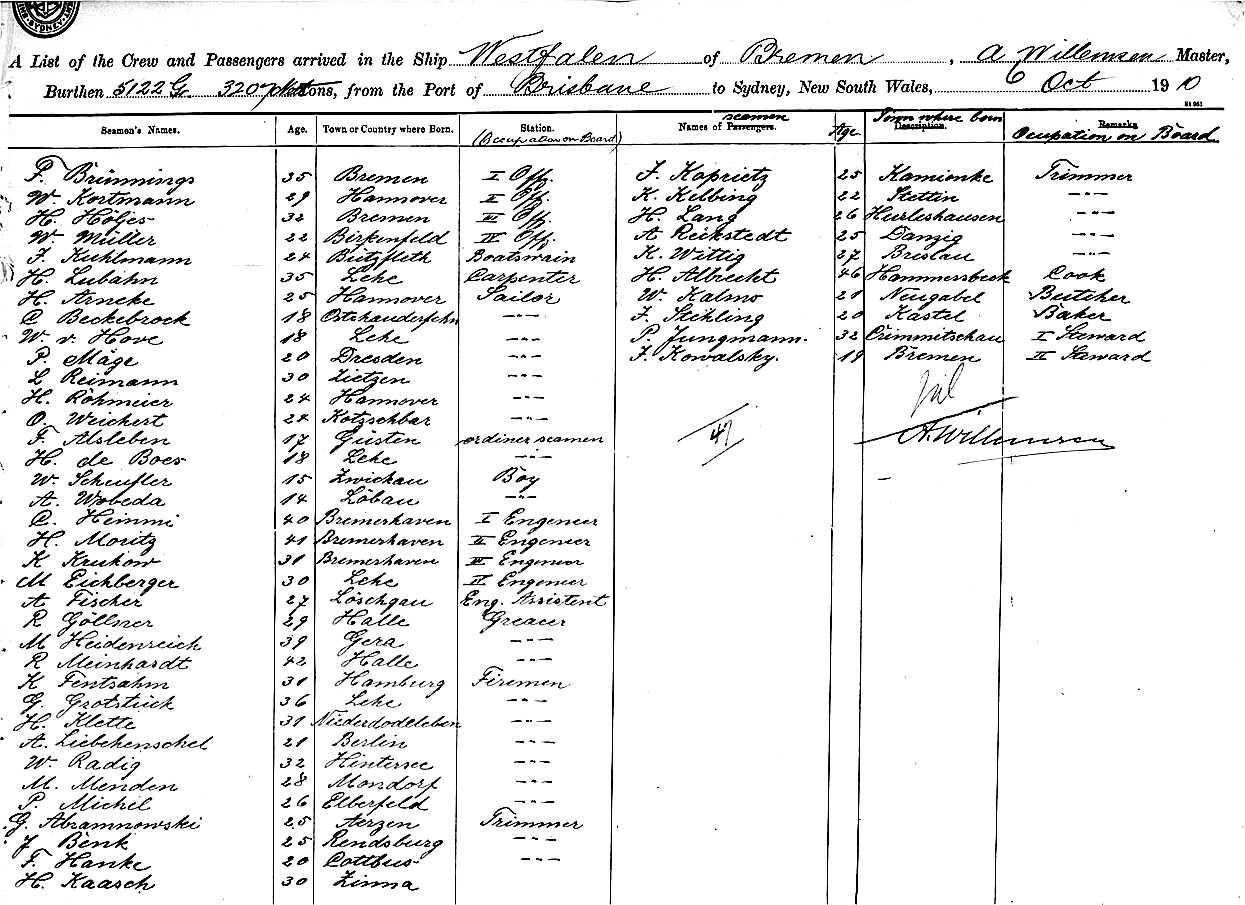 SYDNEY
A List of the Crew and Passengers arrived in the Ship Westfalen of Bremen, A Willemsen Master,
Burthen 5122 G. 3207 tons, from the Port of Brisbane to Sydney, New South Wales, 6 Oct 1910
Seamen's Names. Age. Town or Country where Born. Station. (Occupation on Board) Names of Passengers. seamen Age Town where born Description. Remarks Ocupation on Board
F. Brünnings 35 Bremen I Off. J. Koprietz 25 Kamionke Trimmer
W. Kortmann 29 Hannover II Off. K. Kelbing 22 Stettin -"-
H. Höljes 32 Bremen III Off. H. Lang 26 Heurleshausen -"-
W. Müller 22 Birkenfeld IV Off. A Reckstedt 25 Danzig -"-
J. Kuhlmann 24 Bützfleth Boatswain K. Wittig 27 Brislau -"-
H. Lubahn 35 Lehe Carpenter H. Albrecht 46 Hammersbeck Cook
H. Arneke 25 Hannover Sailor W. Kalmo 21 Neugabel Butcher
C Beckebrock 18 Ostrhauderfehn -"- F. Stihling 20 Kastel Baker
W. v. Hove 18 Lehe -"- P. Jungmann. 32 Crimmitschau I Steward
P. Mäge 20 Dresden -"- F. Kowalsky. 19 Bremen II Steward
L Reimann 30 Zietzen -"-
H. Röhmeier 24 Hannover -"-
O. Weichert 24 Kötzschbar -"-
F. Alsleben 17 Güsten ordiner seamen 47 A. Willemsen
H. de Boer 18 Lehe -"-
W. Scheufler 15 Zwickau Boy
A. Wobeda 14 Löbau -"-
C. Heimmi 40 Bremerhaven I Engeneer
H. Moritz 41 Bremerhaven II Engeneer
K Krukow 31 Bremerhaven III Engeneer
M Eichberger 30 Lehe IV Engeneer
A Fischer 27 Löschgau Eng. Assistent
R Göllner 29 Halle Greacer
M Heidenreich 39 Gera -"-
R Meinhardt 42 Halle -"-
K Fentsahm 31 Hamburg Firemen
G. Grotstück 36 Lehe -"-
H. Klette 31 Niederdodeleben -"-
A. Liebchenschel 21 Berlin -"-
W. Radig 32 Hintersee -"-
M. Menden 28 Mondorf -"-
P. Michel 26 Elberfeld -"-
G. Abramnowski 25 Aerzen Trimmer
J Benk 25 Rendsburg -"-
F. Hanke 20 Cottbus -"-
H. Kaasch 30 Zinna